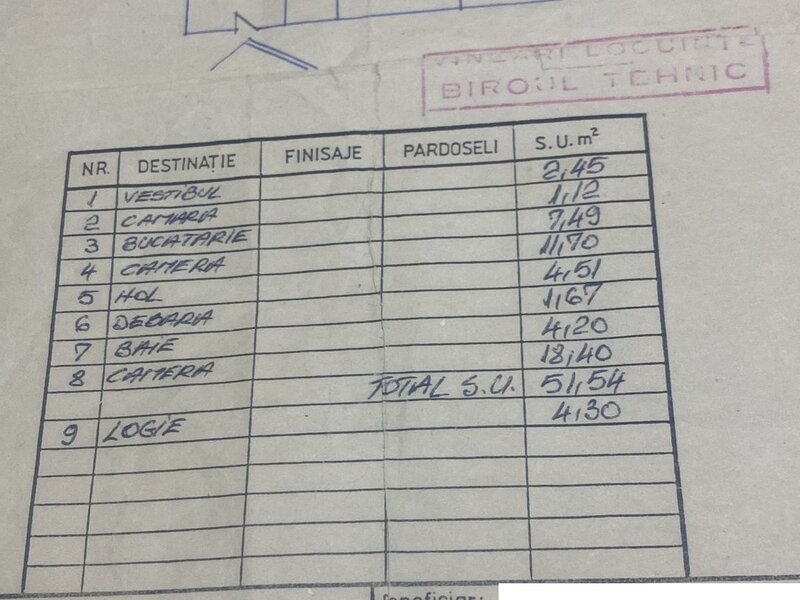 VINZARI LOCUINTE
BIROUL TEHNIC
NR. DESTINAȚIE FINISAJE PARDOSELI S.U. m²
1 VESTIBUL 2,45
2 CAMARA 1,12
3 BUCATARIE 7,49
4 CAMERA 11,70
5 HOL 4,51
6 DEBARA 1,67
7 BAIE 4,20
8 CAMERA 18,40
TOTAL S.U. 51,54
9 LOGIE 4,30